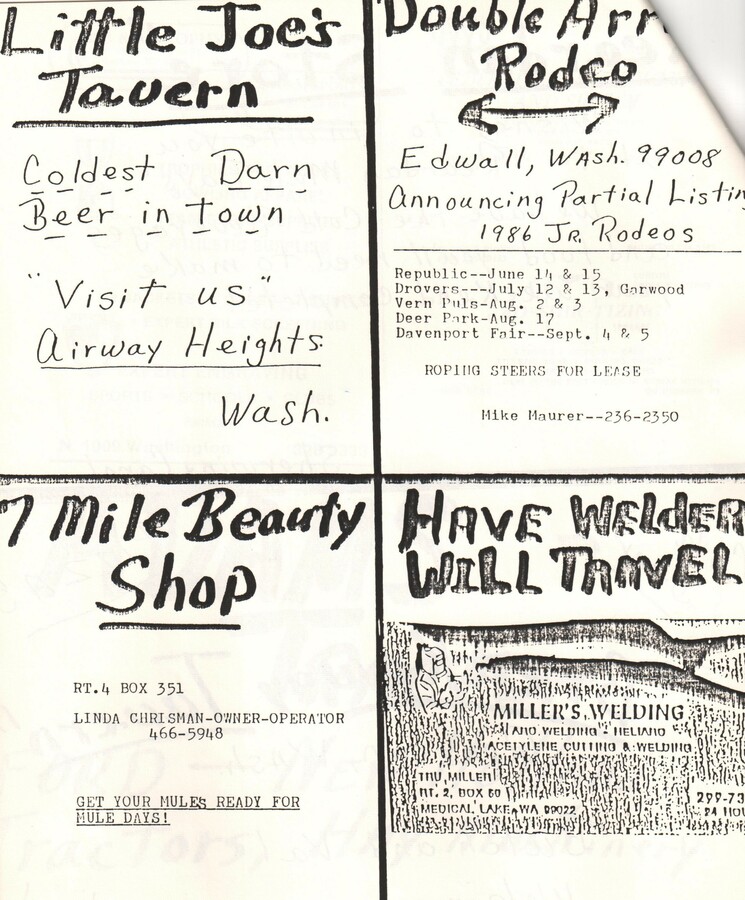 Little Joe's
Tavern
Coldest Darn
Beer in town
"Visit us"
Airway Heights
Wash.
Double Arr
Rodeo
Edwall, Wash. 99008
Announcing Partial Listin
1986 Jr. Rodeos
Republic--June 14 & 15
Drovers---July 12 & 13, Garwood
Vern Puls-Aug. 2 & 3
Deer Park-Aug. 17
Davenport Fair--Sept. 4 & 5
ROPING STEERS FOR LEASE
Mike Maurer--236-2350
7 Mile Beauty
Shop
RT.4 BOX 351
LINDA CHRISMAN-OWNER-OPERATOR
466-5948
GET YOUR MULES READY FOR
MULE DAYS!
HAVE WELDER
WILL TRAVEL
MILLER'S WELDING
WELDING HELIARC
ACETYLENE CUTTING & WELDING
MILLER
RT. 2, BOX 60
MEDICAL LAKE, WA 99022
299-73
24 HOU